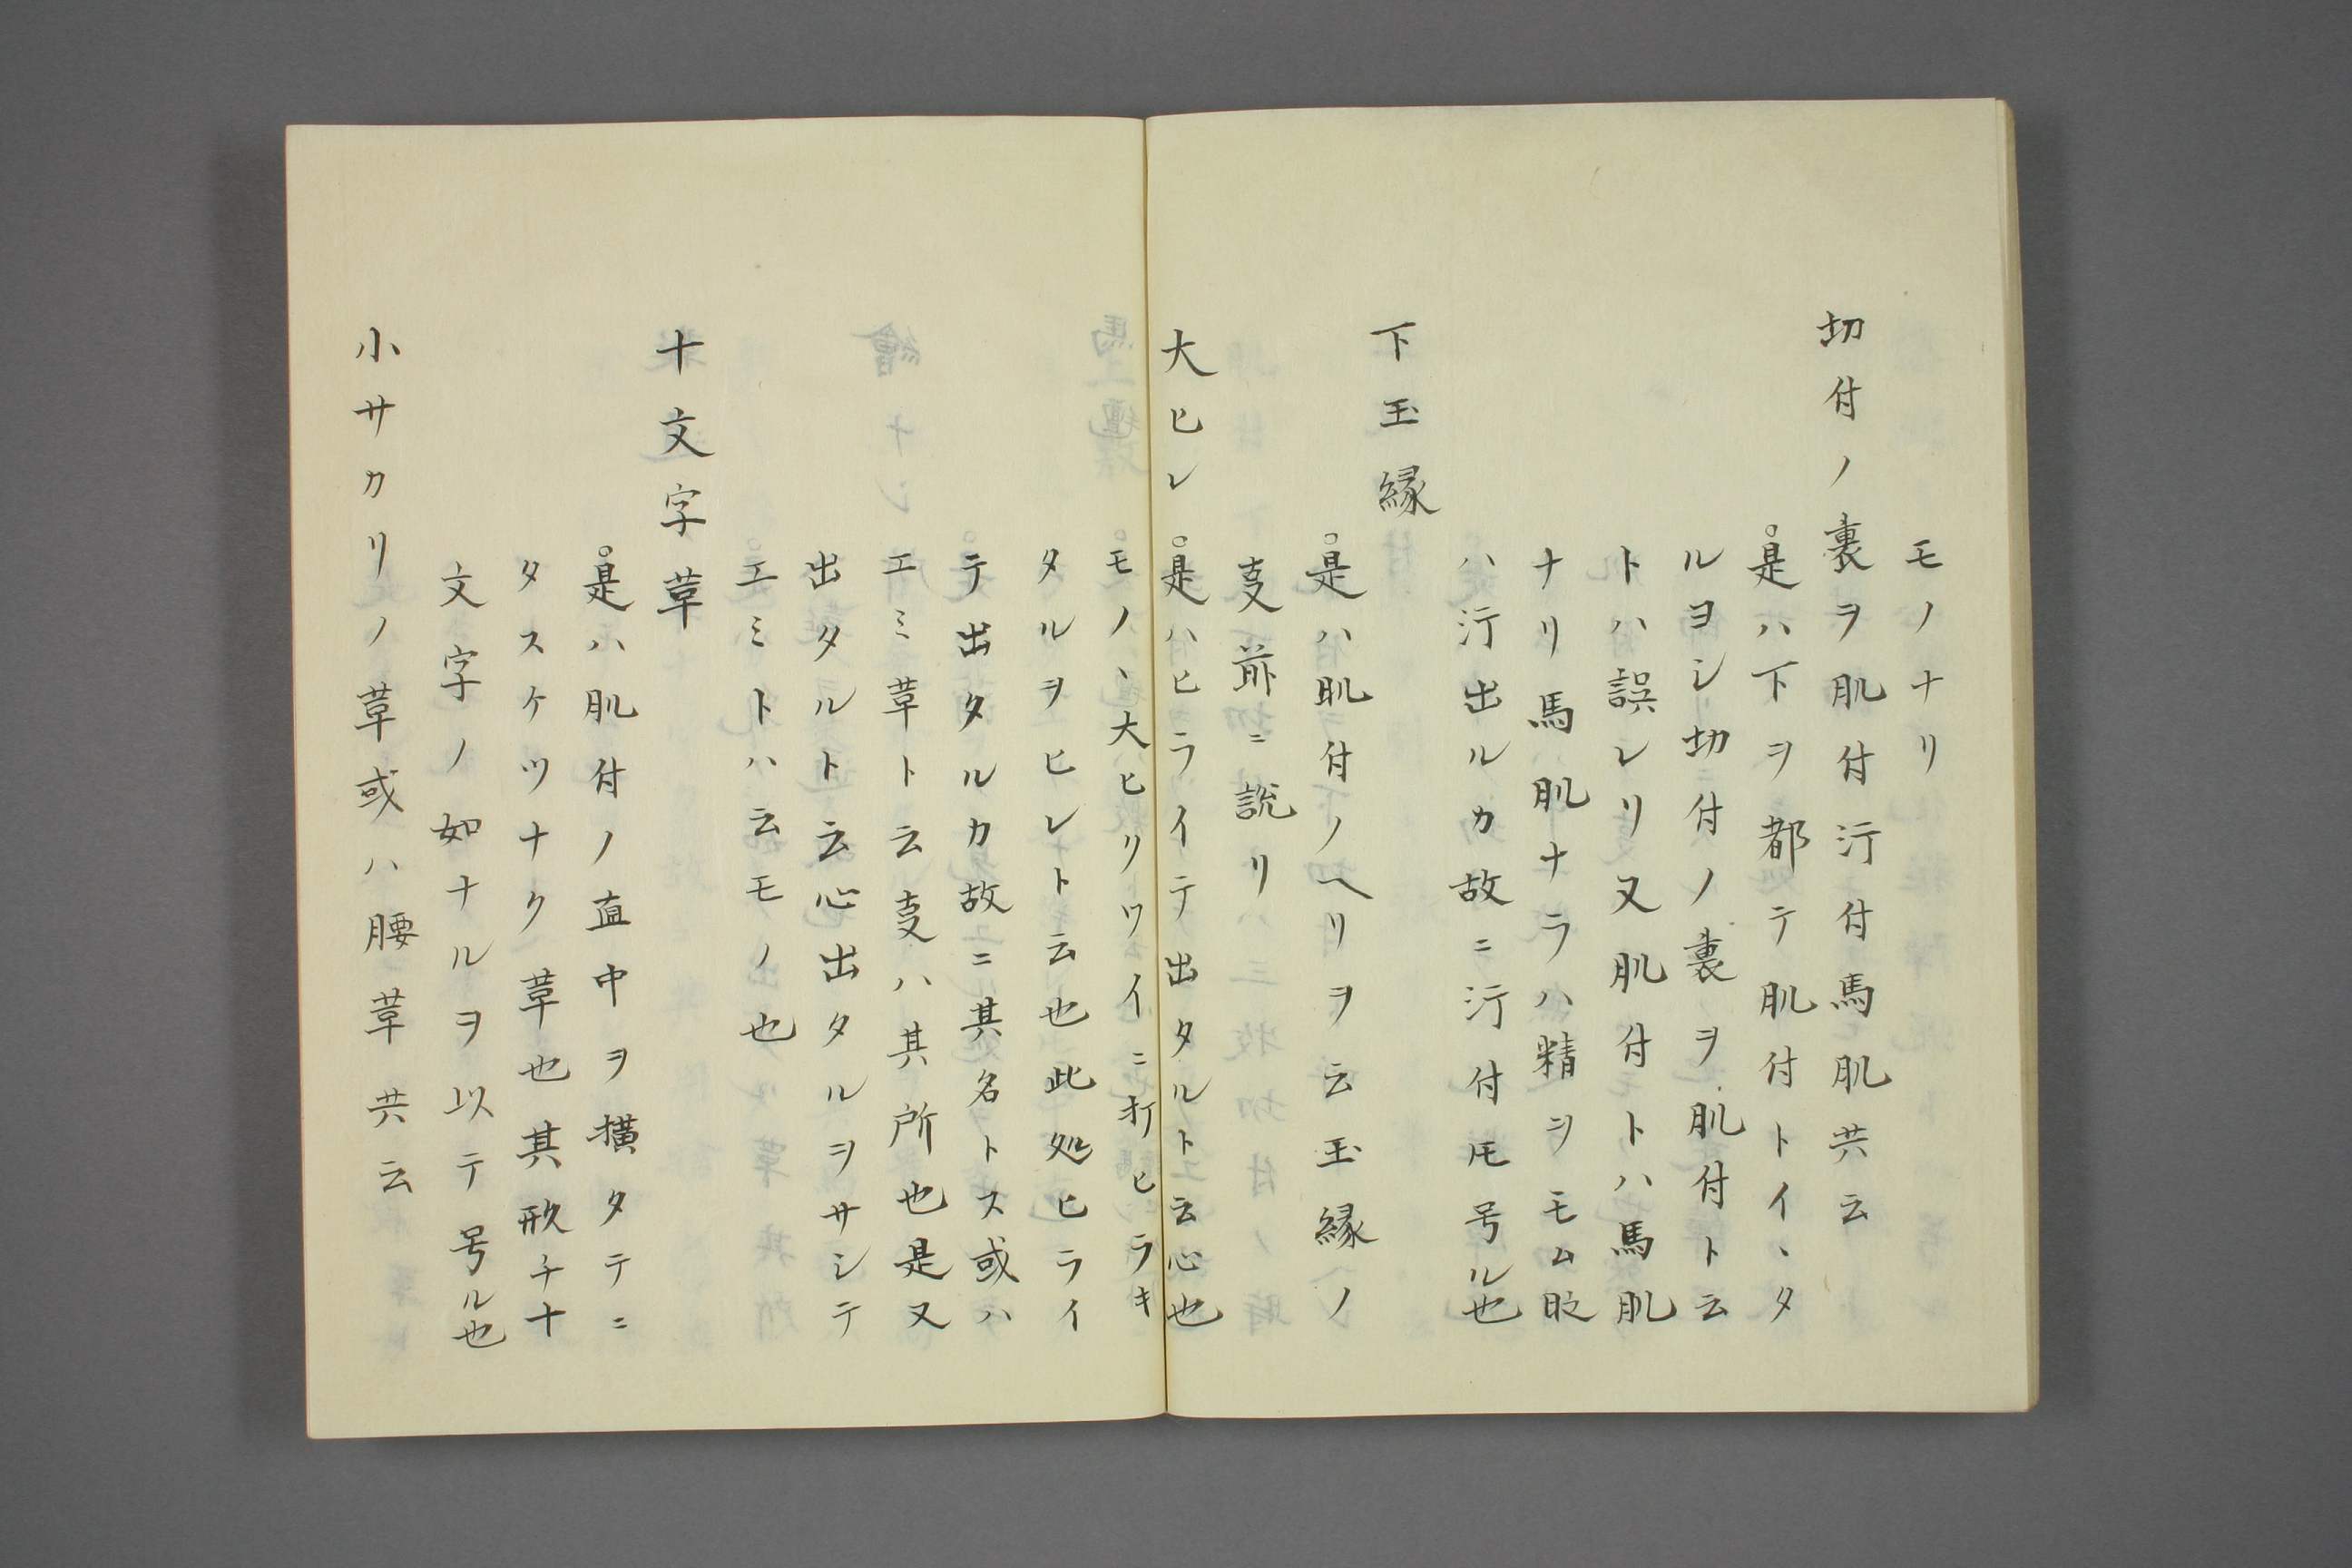 モノナリ
切付ノ裏ヲ肌付汗付馬肌共云
是ハ下ヲ都テ肌付トイヽタ
ルヨシ切付ノ裏ヲ肌付ト云
トハ誤レリ又肌付トハ馬肌
ナリ馬ハ肌ナラハ精ヲモム
ハ汗出ルカ故ニ汗付ヿ号ル也
下玉縁
是ハ肌付ノヘリヲ云玉縁ノ
叓前ニ説リ
大ヒレ是ハヒライテ出タルト云心也
モノヽ大ヒリワイニ打ヒラキ
タルヲヒレト云也此処ヒライ
テ出タルカ故ニ其名トス或ハ
エミ草ト云叓ハ其所也是又
出タルト云心出タルヲサシテ
エミトハ云モノ也
十文字草
是ハ肌付ノ直中ヲ横タテニ
タスケツナク草也其形チ十
文字ノ如ナルヲ以テ号ル也
小サカリノ草或ハ腰草共云